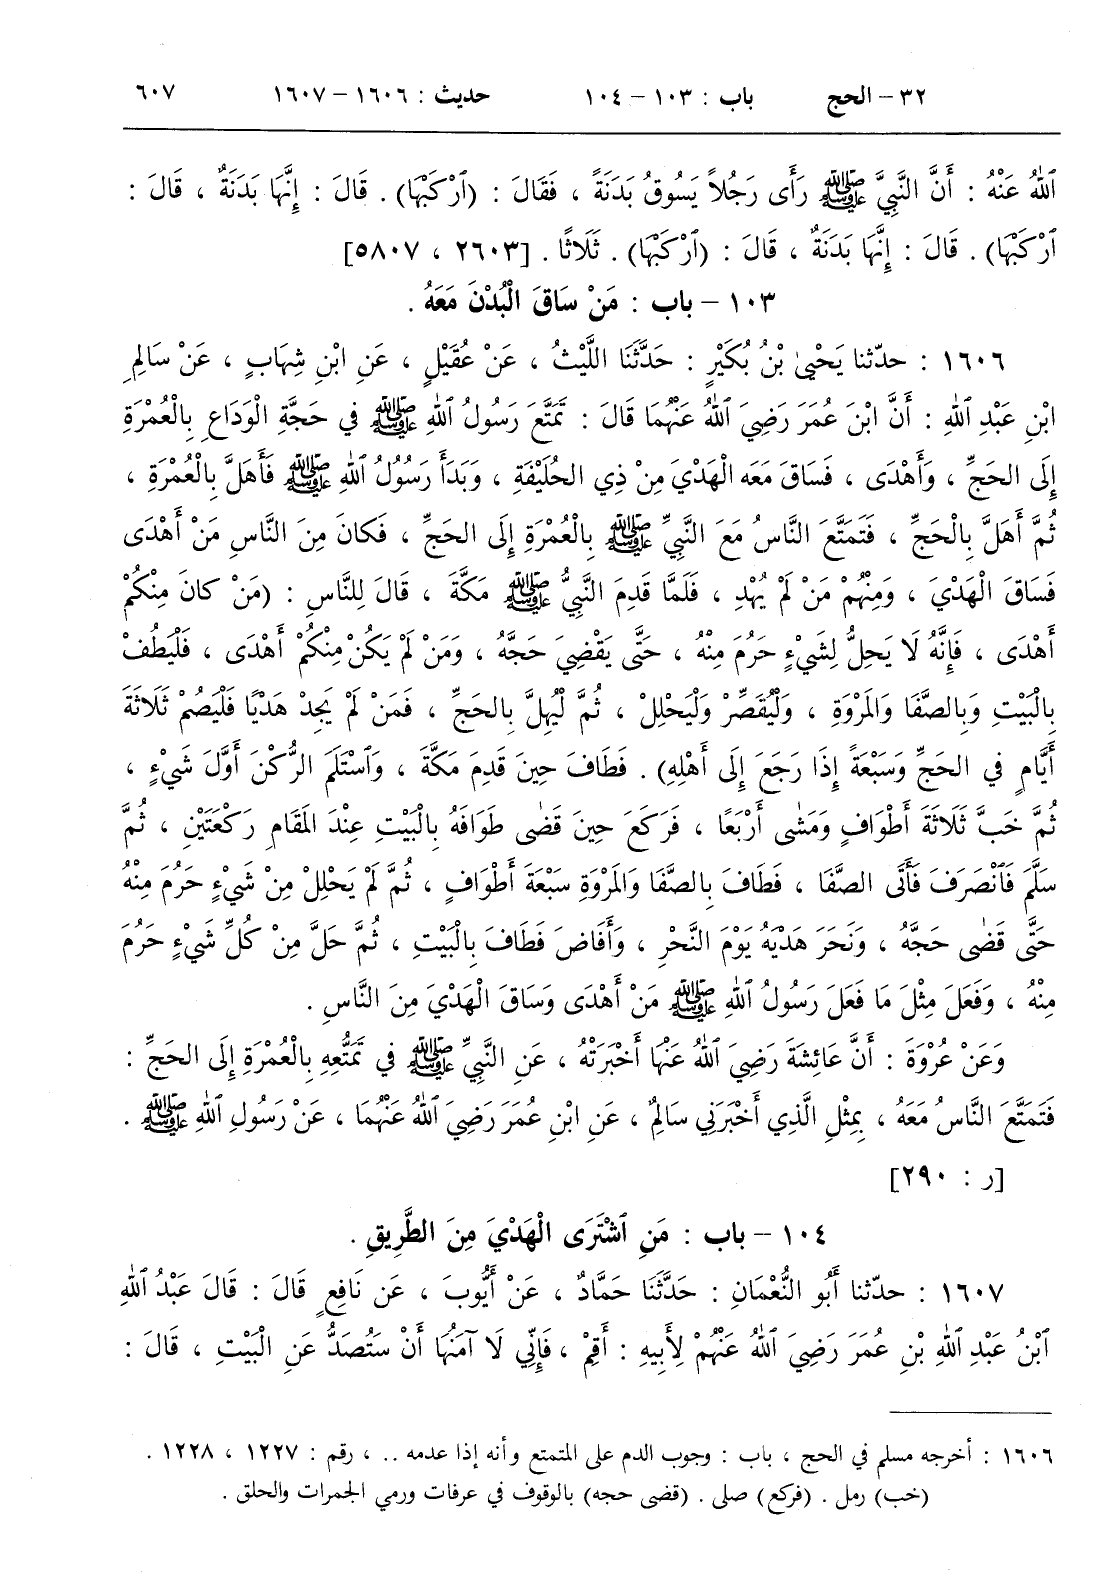 ٣٢ – الحج باب : ١٠٣ – ١٠٤ حديث : ١٦٠٦ – ١٦٠٧ ٦٠٧
ٱللهُ عَنْهُ : أَنَّ النَّبِيَّ ﷺ رَأَى رَجُلاً يَسُوقُ بَدَنَةً ، فَقَالَ : (ٱرْكَبْهَا) . قَالَ : إِنَّهَا بَدَنَةٌ ، قَالَ :
ٱرْكَبْهَا) . قَالَ : إِنَّهَا بَدَنَةٌ ، قَالَ : (ٱرْكَبْهَا) . ثَلَاثًا . [٢٦٠٣ ، ٥٨٠٧]
١٠٣ – باب : مَنْ سَاقَ الْبُدْنَ مَعَهُ .
١٦٠٦ : حدّثنا يَحْيىٰ بْنُ بُكَيْرٍ : حَدَّثَنَا اللَّيْثُ ، عَنْ عُقَيْلٍ ، عَنِ ابْنِ شِهَابٍ ، عَنْ سَالِمِ
ابْنِ عَبْدِ ٱللهِ : أَنَّ ابْنَ عُمَرَ رَضِيَ ٱللهُ عَنْهُمَا قَالَ : تَمَتَّعَ رَسُولُ ٱللهِ ﷺ في حَجَّةِ الْوَدَاعِ بِالْعُمْرَةِ
إِلَى الحَجِّ ، وَأَهْدَى ، فَسَاقَ مَعَه الْهَدْيَ مِنْ ذِي الحُلَيْفَةِ ، وَبَدَأَ رَسُولُ ٱللهِ ﷺ فَأَهَلَّ بِالْعُمْرَةِ ،
ثُمَّ أَهَلَّ بِالْحَجِّ ، فَتَمَتَّعَ النَّاسُ مَعَ النَّبِيِّ ﷺ بِالْعُمْرَةِ إِلَى الحَجِّ ، فَكانَ مِنَ النَّاسِ مَنْ أَهْدَى
فَسَاقَ الْهَدْيَ ، وَمِنْهُمْ مَنْ لَمْ يُهْدِ ، فَلَمَّا قَدِمَ النَّبِيُّ ﷺ مَكَّةَ ، قَالَ لِلنَّاسِ : (مَنْ كانَ مِنْكُمْ
أَهْدَى ، فَإِنَّهُ لَا يَحِلُّ لِشَيْءٍ حَرُمَ مِنْهُ ، حَتَّى يَقْضِيَ حَجَّهُ ، وَمَنْ لَمْ يَكُنْ مِنْكُمْ أَهْدَى ، فَلْيَطُفْ
بِالْبَيْتِ وَبِالصَّفَا وَالمَرْوَةِ ، وَلْيُقَصِّرْ وَلْيَحْلِلْ ، ثُمَّ لْيُهِلَّ بِالحَجِّ ، فَمَنْ لَمْ يَجِدْ هَدْيًا فَلْيَصُمْ ثَلَاثَةَ
أَيَّامٍ في الحَجِّ وَسَبْعَةً إِذَا رَجَعَ إِلَى أَهْلِهِ) . فَطَافَ حِينَ قَدِمَ مَكَّةَ ، وَٱسْتَلَمَ الرُّكْنَ أَوَّلَ شَيْءٍ ،
ثُمَّ خَبَّ ثَلَاثَةَ أَطْوَافٍ وَمَشٰى أَرْبَعًا ، فَرَكَعَ حِينَ قَضٰى طَوَافَهُ بِالْبَيْتِ عِنْدَ المَقَامِ رَكْعَتَيْنِ ، ثُمَّ
سَلَّمَ فَٱنْصَرَفَ فَأَتَى الصَّفَا ، فَطَافَ بِالصَّفَا وَالمَرْوَةِ سَبْعَةَ أَطْوَافٍ ، ثُمَّ لَمْ يَحْلِلْ مِنْ شَيْءٍ حَرُمَ مِنْهُ
حَتَّى قَضٰى حَجَّهُ ، وَنَحَرَ هَدْيَهُ يَوْمَ النَّحْرِ ، وَأَفَاضَ فَطَافَ بِالْبَيْتِ ، ثُمَّ حَلَّ مِنْ كُلِّ شَيْءٍ حَرُمَ
مِنْهُ ، وَفَعَلَ مِثْلَ مَا فَعَلَ رَسُولُ ٱللهِ ﷺ مَنْ أَهْدَى وَسَاقَ الْهَدْيَ مِنَ النَّاسِ .
وَعَنْ عُرْوَةَ : أَنَّ عَائِشَةَ رَضِيَ ٱللهُ عَنْهَا أَخْبَرَتْهُ ، عَنِ النَّبِيِّ ﷺ في تَمَتُّعِهِ بِالْعُمْرَةِ إِلَى الحَجِّ :
فَتَمَتَّعَ النَّاسُ مَعَهُ ، بِمِثْلِ الَّذِي أَخْبَرَنِي سَالِمٌ ، عَنِ ابْنِ عُمَرَ رَضِيَ ٱللهُ عَنْهُمَا ، عَنْ رَسُولِ ٱللهِ ﷺ .
[ر : ٢٩٠]
١٠٤ – باب : مَنِ ٱشْتَرَى الْهَدْيَ مِنَ الطَّرِيقِ .
١٦٠٧ : حدّثنا أَبُو النُّعْمَانِ : حَدَّثَنَا حَمَّادٌ ، عَنْ أَيُّوبَ ، عَن نَافِعٍ قَالَ : قَالَ عَبْدُ ٱللهِ
ٱبْنُ عَبْدِ ٱللهِ بْنِ عُمَرَ رَضِيَ ٱللهُ عَنْهُمْ لِأَبِيهِ : أَقِمْ ، فَإِنِّي لَا آمَنُهَا أَنْ سَتُصَدُّ عَنِ الْبَيْتِ ، قَالَ :
١٦٠٦ : أخرجه مسلم في الحج ، باب : وجوب الدم على المتمتع وأنه إذا عدمه .. ، رقم : ١٢٢٧ ، ١٢٢٨ .
(خب) رمل . (فركع) صلى . (قضى حجه) بالوقوف في عرفات ورمي الجمرات والحلق .